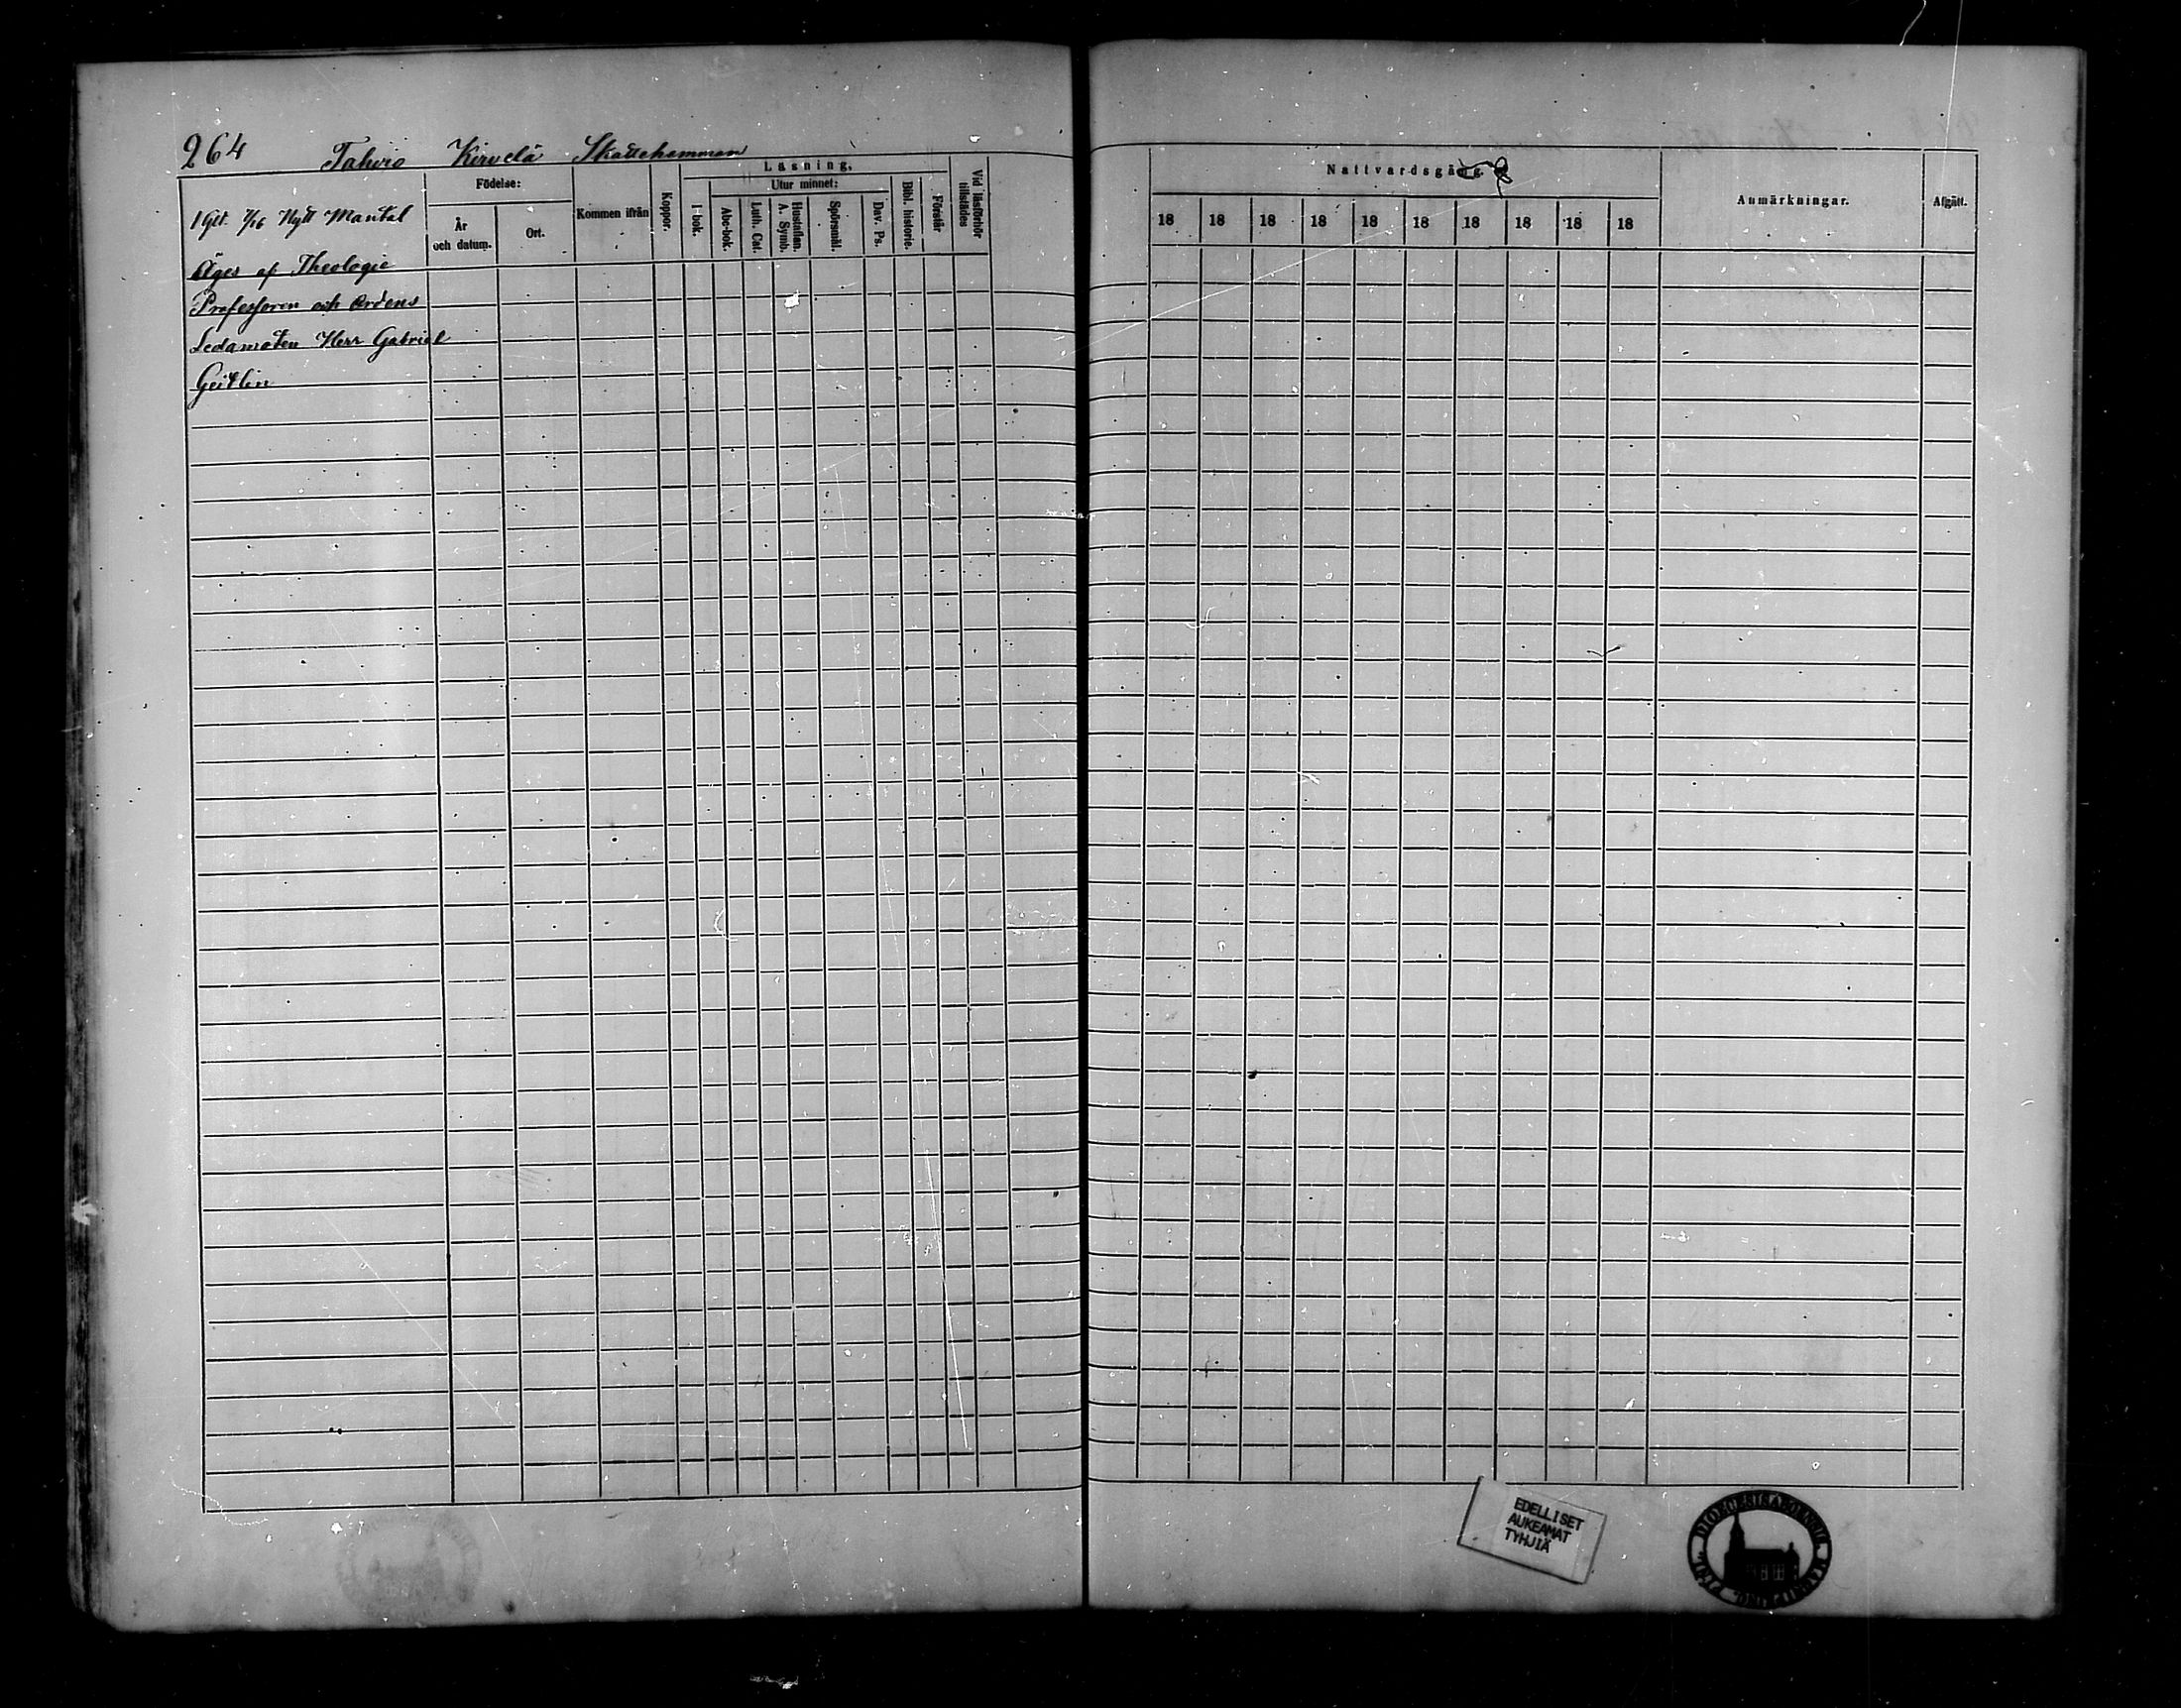 264 Tahvio Kirvelä Skattehemman
Läsning.
Födelse:
Utur minnet:
Kommen ifrån
Koppor.
I bok.
Abc-bok.
Luth. Cat.
Hustaflan.
A. Symb.
Spörsmål.
Dav. Ps.
Bibl. historie.
Förstår
Vid läsförhör
tillstädes
År
och datum.
Ort.
1 Get. 7/16 Nytt Mantal
Äges af Theologie
Professoren och Ordens
Ledamoten Herr Gabriel
Geitlin
Nattvardsgång.
Anmärkningar.
Afgått.
18 18 18 18 18 18 18 18 18 18
EDELLISET
AUKEAMAT
TYHJIÄ